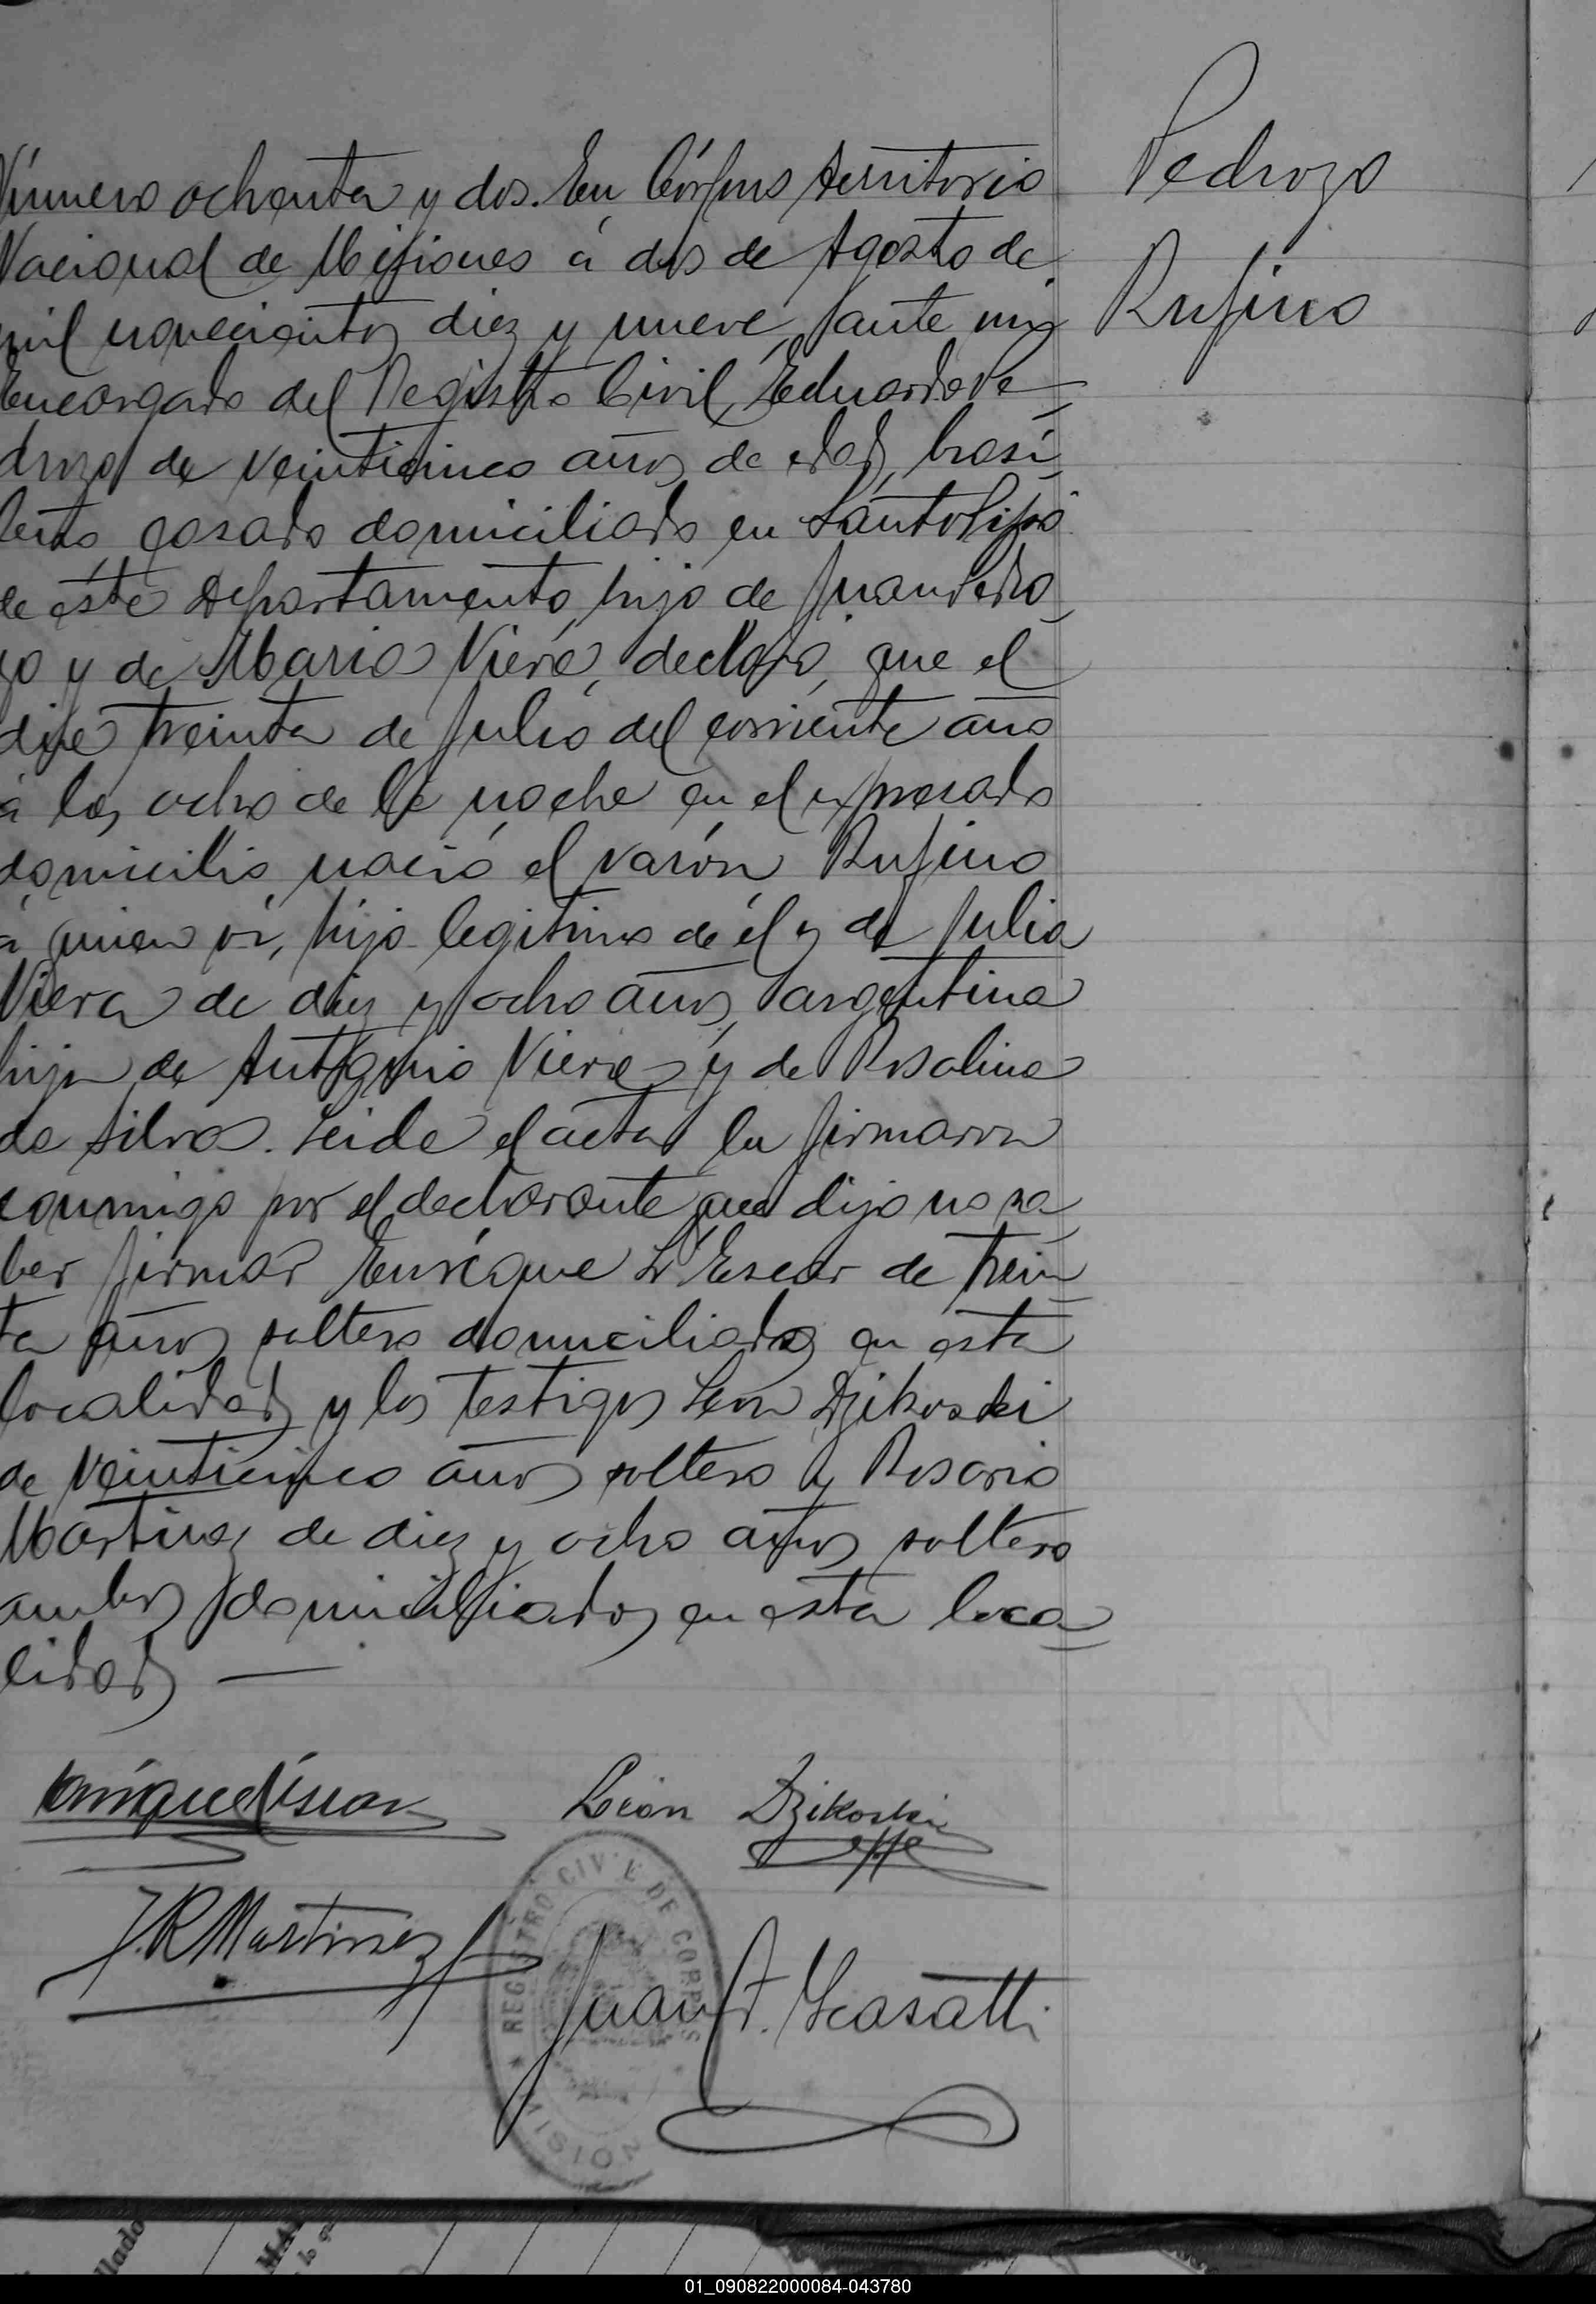 Pedrozo
Rufino
Número ochenta y dos. En Córpus territorio
Nacional de Misiones á dos de Agosto de
mil novecientos diez y nueve, ante mi
Encargado del Registro Civil, Eduardo Pe-
drozo de veinticinco años de edad, brasi-
leño, casado domiciliado en Santo Pipó
de éste Departamento, hijo de Juan Pedro-
zo y de Maria Viera, declaró, que el
dia treinta de Julio del corriente año
á las ocho de la noche en el expresado
domicilio nació el varón Rufino
á quien ví, hijo legitimo de él y de Julia
Viera de diez y ocho años, argentina
hija de Antonio Viera y de Rosalina
da Silva. Leida el acta la firmaron
conmigo por el declarante que dijo no sa-
ber firmar Enrique Escar de trein-
ta años soltero domiciliado en esta
localidad y los testigos Leon Dzikoski
de veinticinco años soltero y Rosario
Martinez de diez y ocho años soltero
ambos domiciliados en esta loca-
lidad —
Enrique Escar León Dzikoski
J. R. Martinez
REGISTRO CIVIL DE CORPUS
Juan A.
MISIONES
llado
01_090822000084-043780